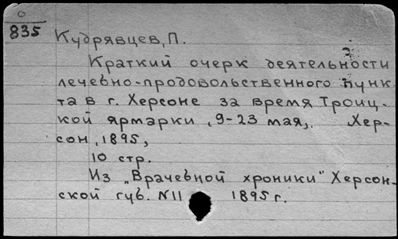 0
835
Кудрявцев, П.
Краткий очерк деятельности
лечебно-продовольственного пунк
та в г. Херсоне за время Троиц-
кой ярмарки, 9-23 мая,. Хер-
сон, 1895,
10 стр.
Из „Врачебной хроники" Херсон-
ской губ. N11 1895 г.